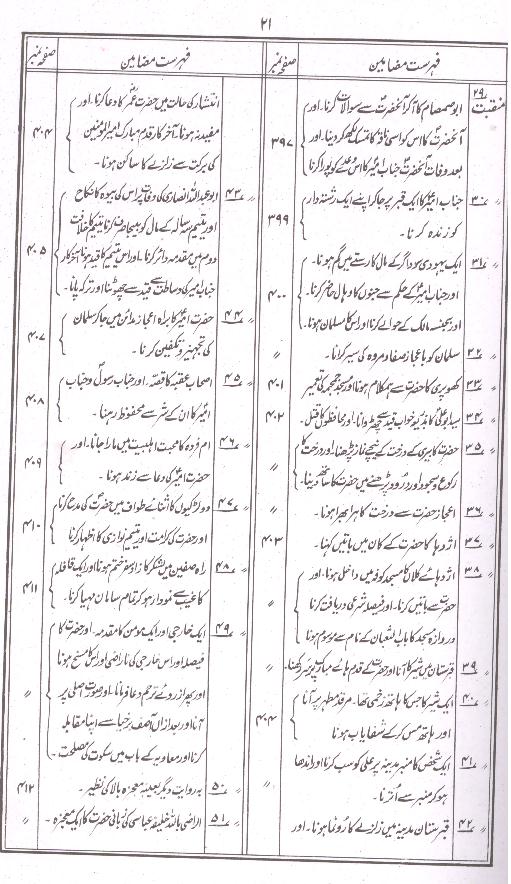 ۲۱
فہرست مضامین
صفحہ نمبر
منقبت ۲۹
ابو صمصام کا آکر آنحضرتؐ سے سوالات کرنا۔ اور
آنحضرتؐ کا اس کو اسی ناقہ کا تمسک لکھ کر دینا۔ اور
بعد وفات آنحضرتؐ جناب امیرؑ کا اس وعدے کو پورا کرنا
۳۹۷
۳۰
جناب امیرؑ کا ایک قبر پر جا کر اپنے ایک رشتہ دار
کو زندہ کرنا۔
۳۹۹
۳۱
ایک یہودی سوداگر کے مال کا رستے میں گم ہونا۔
اور جناب امیرؑ کے حکم سے جنوں کا وہاں حاضر کرنا۔
اور بجنسہ مالک کے حوالے کرنا اور اس کا مسلمان ہونا۔
۴۰۰
۳۲
سلمان کو با عجاز صفا و مروہ کی سیر کرانا۔
〃
۳۳
کھوپری کا حضرت سے ہمکلام ہونا۔ اور مسجد جمجمہ کی تعمیر
۴۰۱
۳۴
سیابو علی کا بذریعہ خواب قید سے چھڑوانا۔ اور محافظوں کا قتل۔
۴۰۲
۳۵
حضرت کا بیری کے درخت کے نیچے نماز پڑھنا۔ اور درخت کا
رکوع و سجود اور درود پڑھنے میں حضرت کا ساتھ دینا۔
〃
۳۶
اعجاز حضرت سے درخت کا ہرا بھرا ہونا۔
〃
۳۷
اژدہا کا حضرت کے کان میں باتیں کہنا۔
۴۰۳
۳۸
اژدہائے کلاں کا مسجد کوفہ میں داخل ہونا۔ اور
حضرت سے باتیں کرنا۔ اور فیصلہ شرعی دریافت کرنا
دروازہ مسجد کا باب الثعبان کے نام سے موسوم ہونا
۳۹
قبرستان میں شیر کا آنا اور حضرت کے قدم ہائے مبارک پر سر رکھنا۔
〃
۴۰
ایک شیر کا جس کا ہاتھ زخمی تھا۔ مرقد مطہر پر آنا
اور ہاتھ مس کر کے شفا یاب ہونا
۴۰۴
۴۱
ایک شخص کا منبر مدینہ پر علی کو سب کرنا اور اندھا
ہو کر منبر سے اترنا۔
〃
۴۲
قبرستان مدینہ میں زلزلے کا رونما ہونا۔ اور
فہرست مضامین
صفحہ نمبر
انتشار کی حالت میں حضرت عمرؓ کا دعا کرنا۔ اور
مفید نہ ہونا۔ آخر کار قدم مبارک امیر المومنین
کی برکت سے زلزلے کا ساکن ہونا۔
۴۰۴
۴۳
ابو عبداللہ انصاری کی وفات پر اس کی بیوہ کا نکاح
اور یتیم سہ سالہ کے مال کو بیجا صرف کرنا یتیم کا خلافت
دوم میں مقدمہ دائر کرنا۔ اور اس یتیم کا قید ہونا آخر کار
جناب امیر کی وساطت سے قید سے چھوٹنا اور ترکہ پانا۔
۴۰۵
۴۴
حضرت امیرؑ کا براہ اعجاز مدائن میں جا کر سلمان
کی تجہیز و تکفین کرنا۔
۴۰۷
۴۵
اصحاب عقبہ کا قصّہ۔ اور جناب رسولؐ و جناب
امیرؑ کا ان کے شر سے محفوظ رہنا۔
۴۰۸
۴۶
ام فروہ کا محبت اہلبیت میں مارا جانا۔ اور
حضرت امیرؑ کی دعا سے زندہ ہونا۔
۴۰۹
۴۷
دو لڑکیوں کا اثنائے طواف میں حضرت کی مدح کرنا
اور حضرت کی کرامت اور یتیم نوازی کا اظہار کرنا
۴۱۰
۴۸
راہ صفین میں لشکر کا زاد راہ ختم ہونا اور ایک قافلہ
کا غیب سے نمودار ہو کر تمام سامان مہیا کرنا۔
۴۱۱
۴۹
ایک خارجی اور ایک مومن کا مقدمہ۔ اور حضرت کا
فیصلہ اور اس خارجی کی ناراضی اور اس کا مسخ ہونا
اور پھر از روئے ترحم دعا فرمانا۔ اور صورت اصلی پر
آنا اور بعد ازاں آصف برخیا سے اپنا مقابلہ
کرنا اور معاویہ کے باب میں سکوت کی مصلحت۔
〃
۵۰
بہ روایت دیگر بعینہ معجزہ بالا کی نظیر۔
۴۱۲
۵۱
الراضی باللہ خلیفہ عباسی کی زبانی حضرت کا ایک معجزہ۔
〃